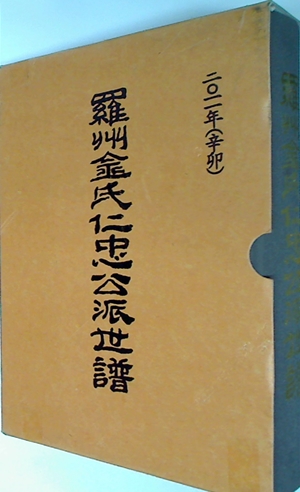 二〇一一年(辛卯)
羅州金氏仁忠公派世譜